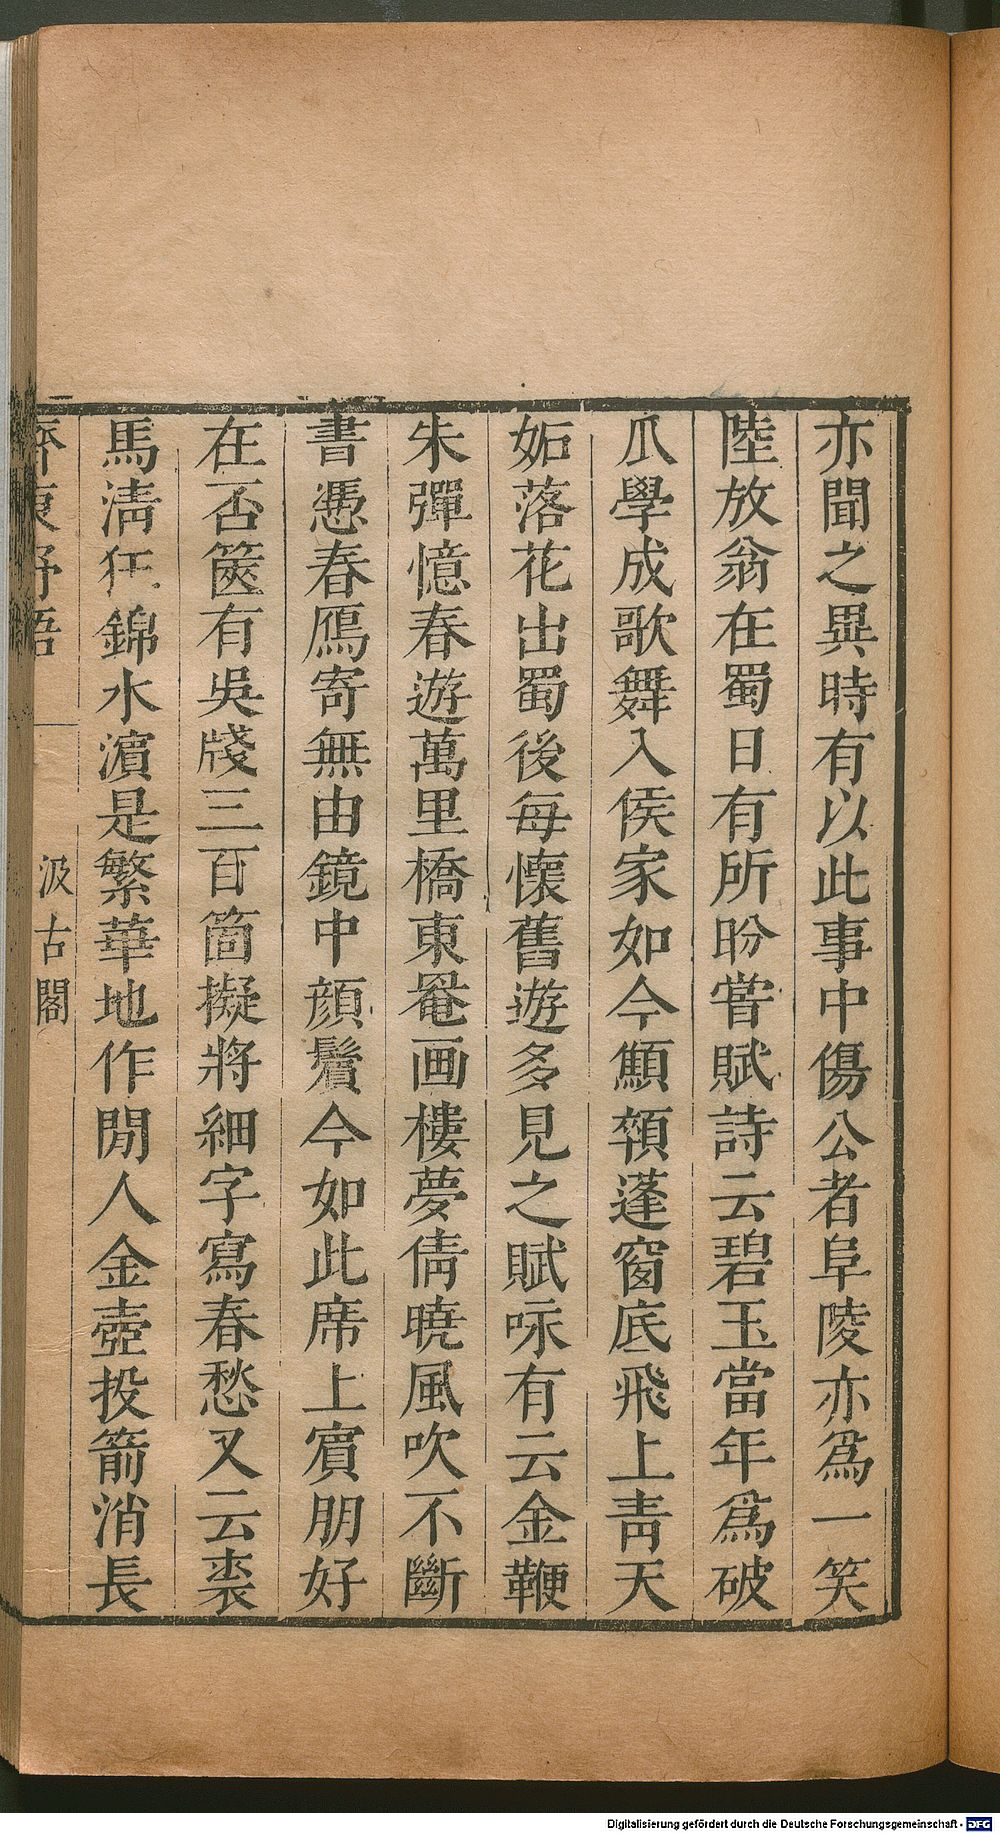 亦聞之異時有以此事中傷公者阜陵亦爲一笑
陸放翁在蜀日有所盼嘗賦詩云碧玉當年爲破
瓜學成歌舞入侯家如今顦顇蓬窗底飛上青天
妬落花出蜀後每懷舊遊多見之賦咏有云金鞭
朱彈憶春遊萬里橋東罨画樓夢倩曉風吹不斷
書憑春鴈寄無由鏡中顏鬢今如此席上賔朋好
在否篋有吳牋三百箇擬將細字寫春愁又云裘
馬清狂錦水濵是繁華地作閒人金壺投箭消長
齊東野語
汲古閣
Digitalisierung gefördert durch die Deutsche Forschungsgemeinschaft - DFG